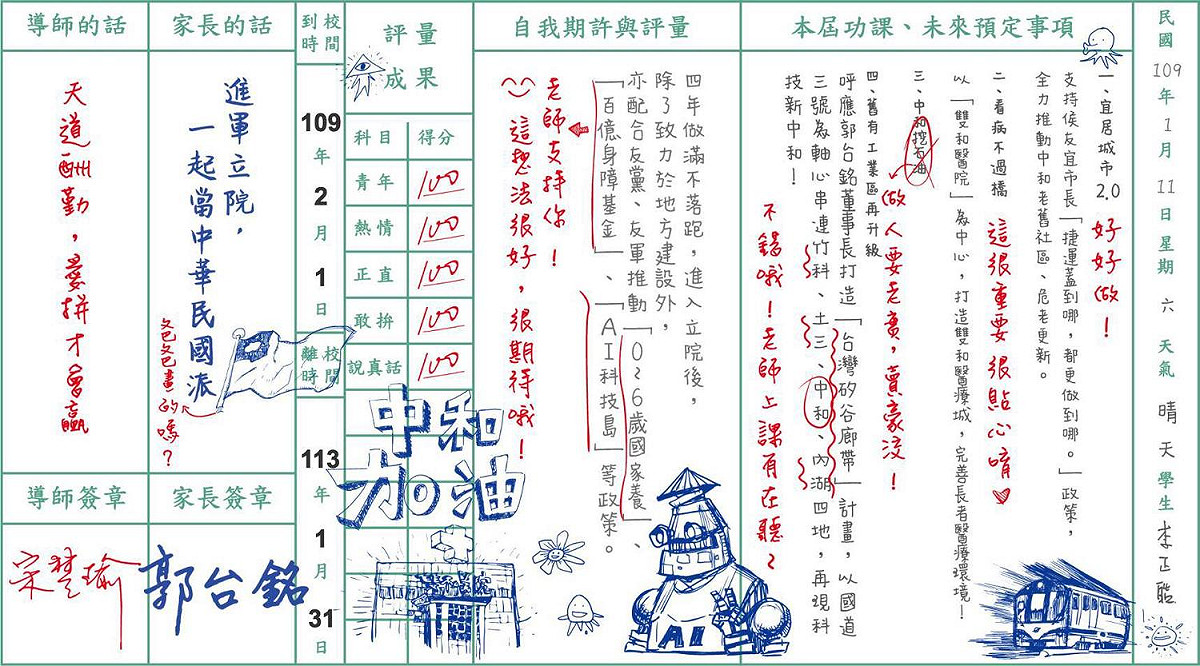 民國109年1月11日星期六 天氣 晴天 學生 李正皓
本屆功課、未來預定事項
一、宜居城市2.0
好好做！
支持侯友宜市長「捷運蓋到哪，都更做到哪。」政策，
全力推動中和老舊社區、危老更新。
二、看病不過橋
這很重要 很貼心唷♡
以「雙和醫院」為中心，打造雙和醫療城，完善長者醫療環境！
三、中和挖石油
做人要老實，賣豪洨！
四、舊有工業區再升級
呼應郭台銘董事長打造「台灣矽谷廊帶」計畫，以國道
三號為軸心串連竹科、土三、中和、內湖四地，再現科
技新中和！
不錯哦！老師上課有在聽~
自我期許與評量
四年做滿不落跑，進入立院後，
除了致力於地方建設外，
亦配合友黨、友軍推動「0~6歲國家養」、
「百億身障基金」、「AI科技島」等政策。
老師支持你！
這想法很好，很期待哦！
AI
評量成果
科目 得分
青年 100
熱情 100
正直 100
敢拚 100
說真話 100
中和
加油
到校時間
109年2月1日
離校時間
113年1月31日
家長的話
進軍立院，
一起當中華民國派
爸爸畫的嗎？
家長簽章
郭台銘
導師的話
天道酬勤，愛拼才會贏
導師簽章
宋楚瑜